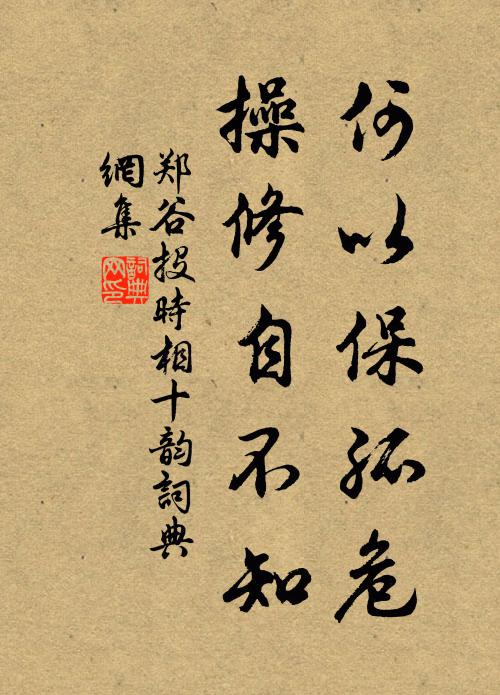 何以保孤危
操修自不知
郑谷投时相十韵詞典
網集
詞典
网印